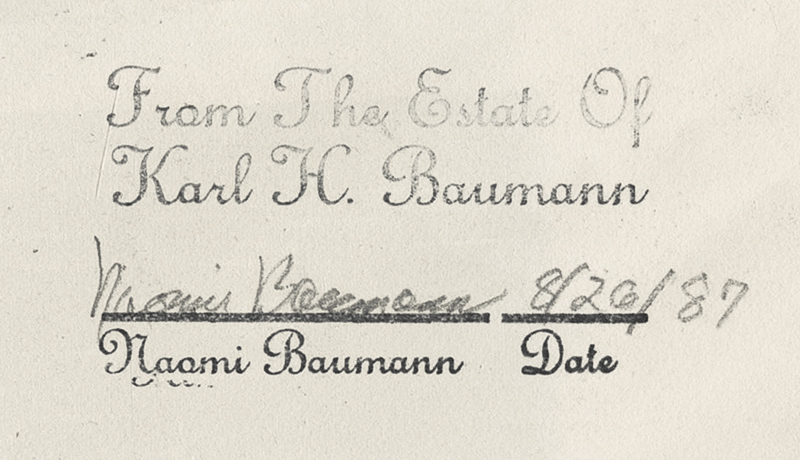 From The Estate Of
Karl H. Baumann
Naomi Baumann 8/26/87
Naomi Baumann Date